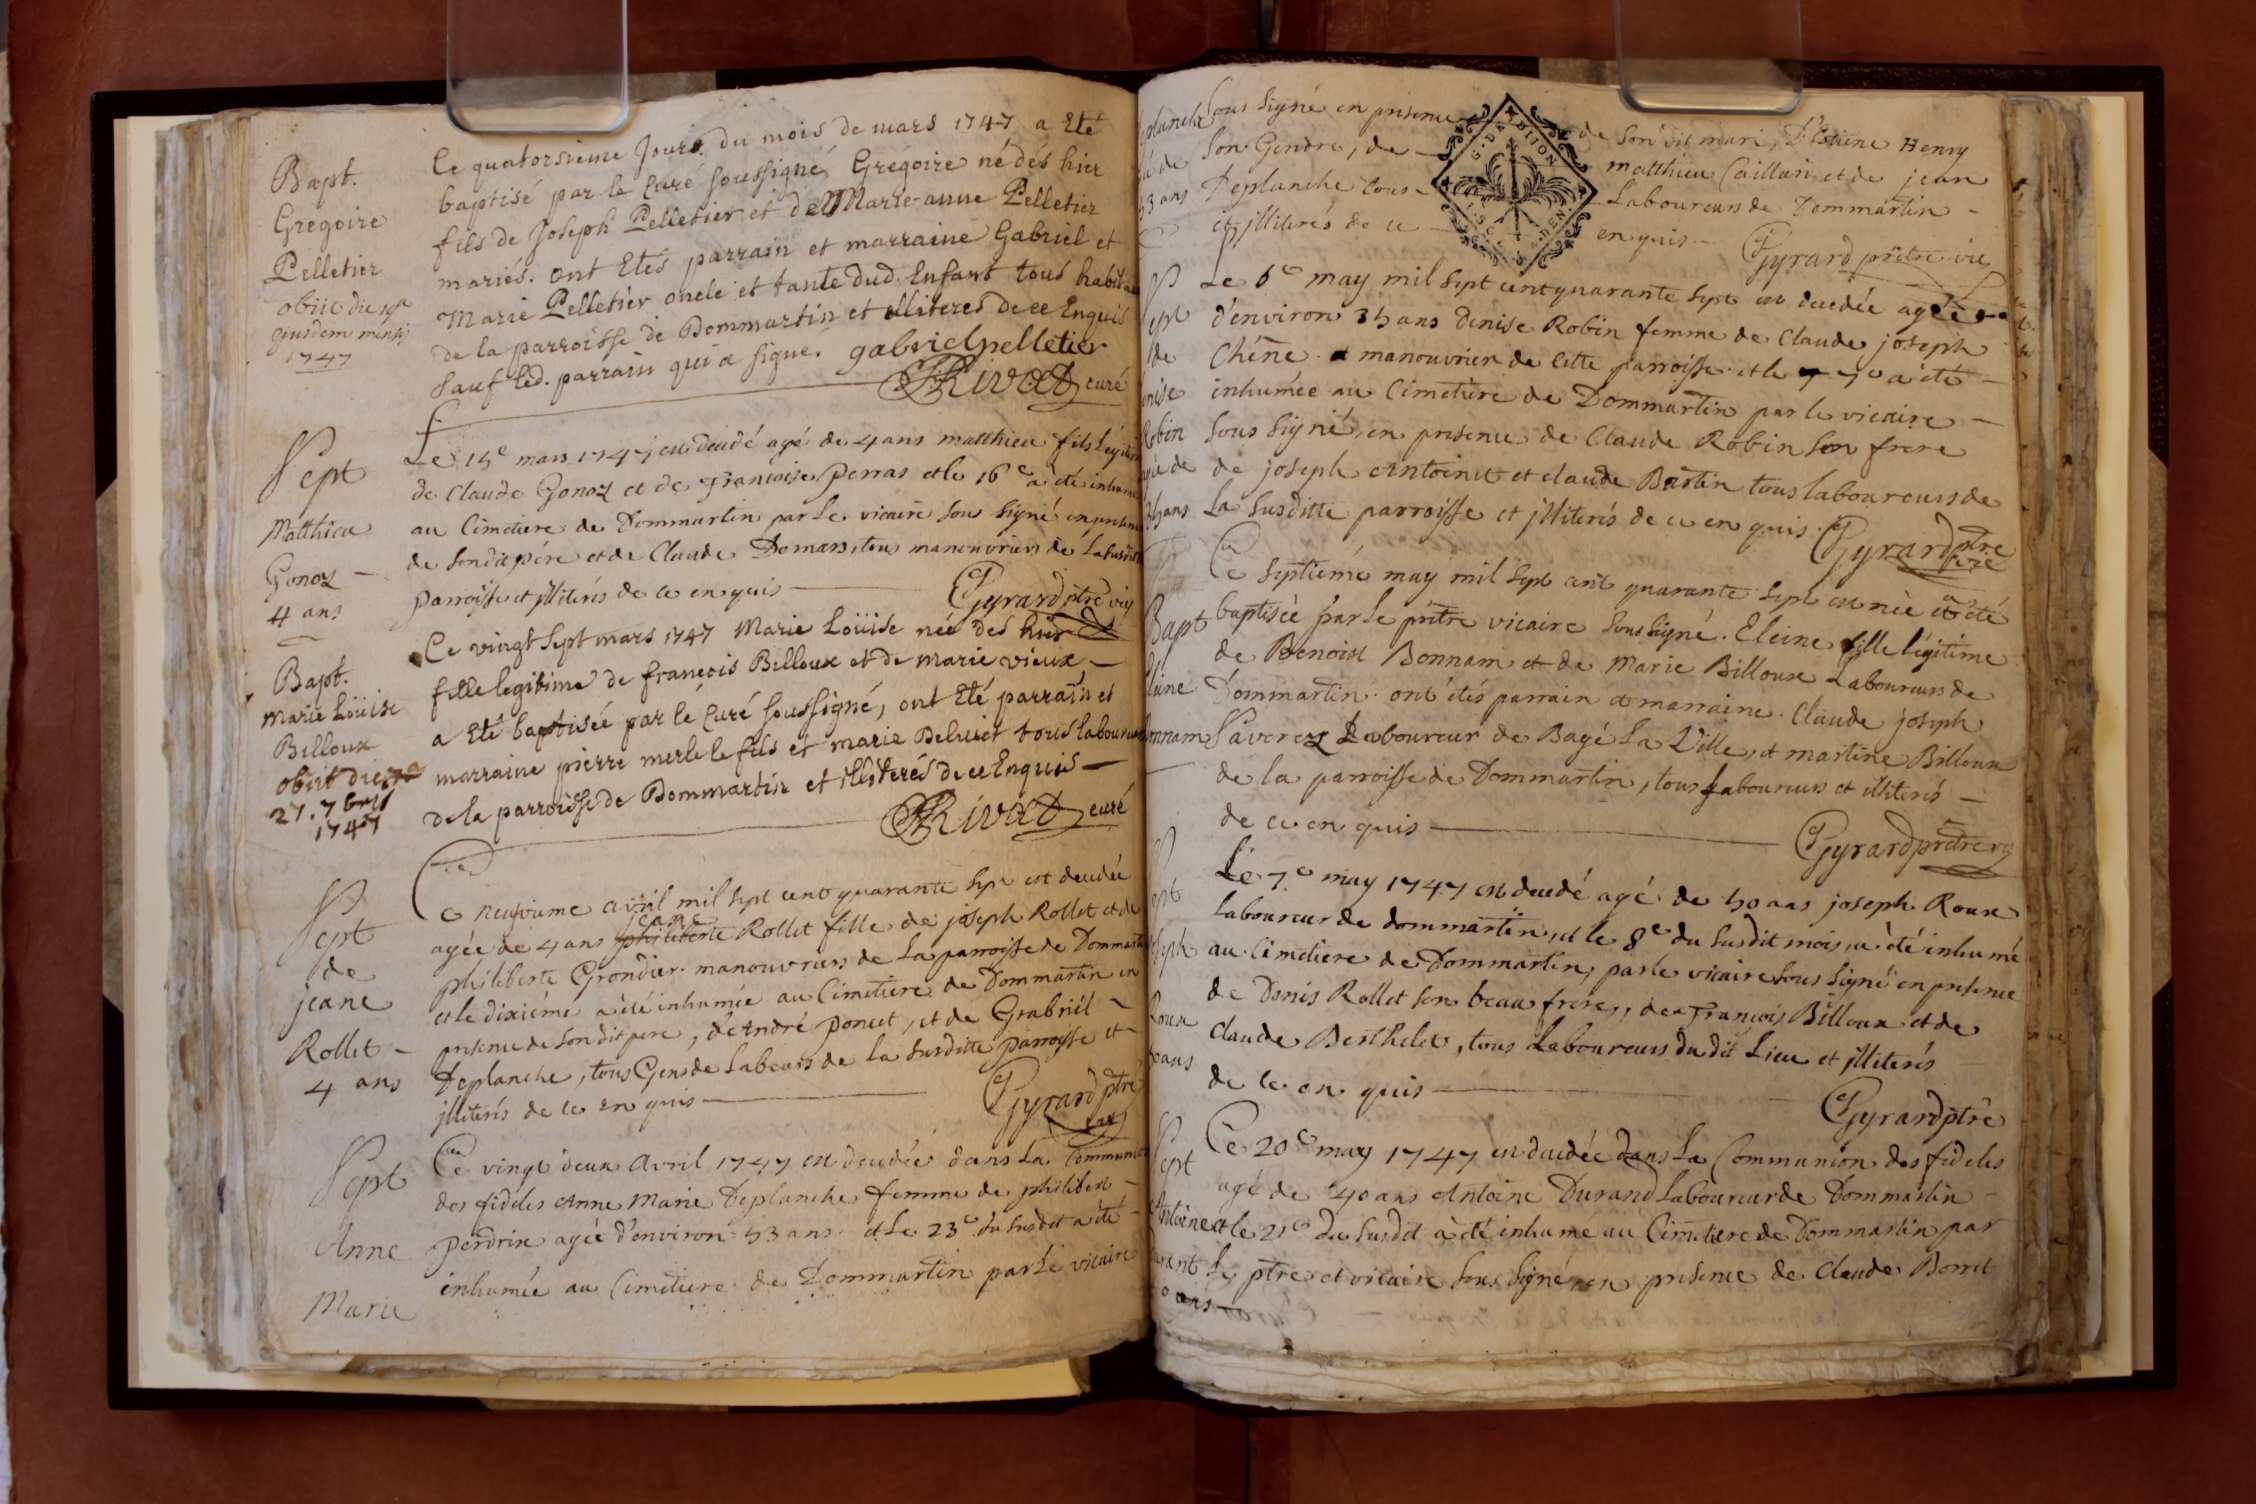 Bapt.
Gregoire
Pelletier
obiit die
ejusdem mensis
1747
Le quatorsieme Jours du mois de mars 1747 a Eté
baptisé par le Curé soussigné Grégoire né dés hier
fils de Joseph Pelletier et de Marie-anne Pelletier
mariés. ont Etés parrain et marraine Gabriel et
Marie Pelletier oncle et tante dud. Enfant tous
de la parroisse de Dommartin et illiteres de ce Enquis
sauf led. parrain qui a signé. gabriel pelletier
Rivat curé
Sept
Matthieu
Gonoz
4 ans
Le 15e mars 1747 est decedé agé de 4 ans matthieu fils
de Claude Gonoz et de Francoise Perras et le 16e a été
au Cimetiere de Dommartin par le vicaire sous signé
de sondit pére et de Claude Domars, tous manouvriers de
parroisse et jlliterés de ce en quis
Gyrard ptre
Bapt.
Marie Loüise
Billoux
obiit die
27. 7bris
1747
Ce vingt sept mars 1747 Marie Loüise née des hier
fille legitime de francois Billoux et de marie vieux
a Eté baptisée par le Curé soussigné, ont Eté parrain et
marraine pierre merle le fils et marie tous
de la parroisse de Dommartin et illiterés de ce Enquis
Rivat curé
Sept
de
jeane
Rollet
4 ans
Ce neufvieme avril mil sept cent quarante sept est decedée
jeane
agée de 4 ans philiberte Rollet fille de joseph Rollet et de
philiberte Grondier manouvriers de La parroisse de
et le dixiéme a été inhumée au Cimetiere de Dommartin en
presence de Son dit pere, d'André poncet, et de Grabriél
Deplanche, tous Gens de Labeurs de la susditte parroisse et
jlliterés de ce en quis
Gyrard ptre
Sept
Anne
Marie
Ce vingt deux Avril 1747 est decedée dans La
des fidéles Anne Marie Deplanche femme de philibert
perdrix agée d'environ 53 ans et Le 23e du susdit a été
inhumée au Cimetiere de Dommartin par Le vicaire
53 ans
Sous signé en presence de Son dit mari, d'Estiene Henry
Son Gendre, de matthieu Caillari et de jean
Deplanche tous Laboureurs de Dommartin
et jlliterés de ce en quis
Gyrard prêtre
G. DE DIJON
Sept
de
Robin
35 ans
Le 6e may mil sept cent quarante sept est decedée agée
d'environ 35 ans denise Robin femme de Claude joseph
Chêne manouvrier de cette parroisse et le 7e a été
inhumée au Cimetiere de Dommartin par le vicaire
sous signé, en presence de Claude Robin son frere
de joseph Antoinet et claude Bertin tous laboureurs de
La susditte parroisse et jlliterés de ce en quis.
Gyrard ptre
Bapt
Ce septiéme may mil sept cent quarante sept est née et a été
baptisée par Le prêtre vicaire sous signé. Eleine fille légitime
de Benoist Bonnain et de Marie Billoux Laboureurs de
Dommartin. ont étés parrain et marraine. Claude joseph
Laboureur de Bagé La Ville, et martine Billoux
de la parroisse de Dommartin, tous Laboureurs et illiterés
de ce en quis
Gyrard prêtre
Roux
Le 7e may 1747 est decedé agé de 50 ans joseph Roux
Laboureur de dommartin, et le 8e du susdit mois, a été inhumé
au Cimetiere de Dommartin, par le vicaire sous signé en presence
de Denis Rollet son beau frere, de François Billoux et de
Claude Berthelet, tous Laboureurs du dit Lieu et jlliterés
de ce en quis
Gyrard ptre
Sept
Antoine
Ce 20e may 1747 est decedée dans La Communion des fideles
agé de 40 ans Antoine Durand Laboureur de Dommartin
et le 21e du susdit a été inhume au Cimetiere de Dommartin par
Le ptre et vicaire sous signé en presence de Claude Borret